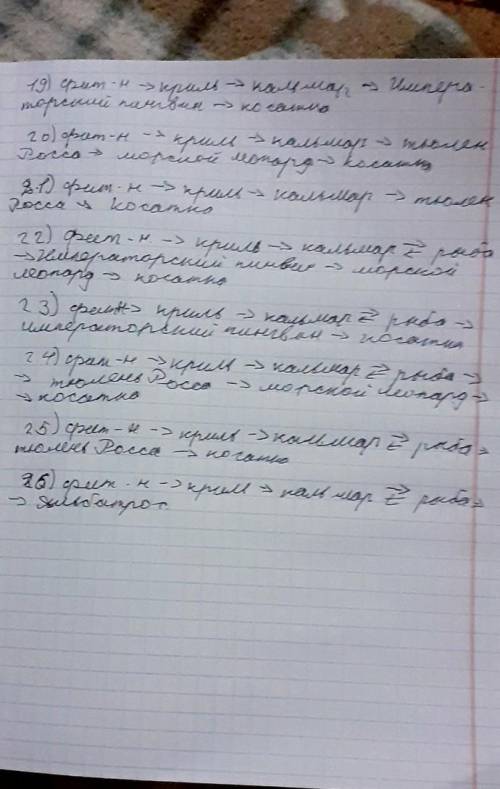 19) фит-н → криль → кальмар → Импера-
торский пингвин → косатка
20) фит-н → криль → кальмар → тюлен
Росса → морской леопард → косатка
21) фит-н → криль → кальмар → тюлен
Росса → косатка
22) фит-н → криль → кальмар ⇄ рыба
→ Императорский пингвин → морской
леопард → косатка
23) фитн → криль → кальмар ⇄ рыба →
императорский пингвин → косатка
24) фит-н → криль → кальмар ⇄ рыба →
→ тюлень Росса → морской леопард →
→ косатка
25) фит-н → криль → кальмар ⇄ рыба →
тюлень Росса → косатка
26) фит-н → крил → кальмар ⇄ рыба →
→ Альбатрос